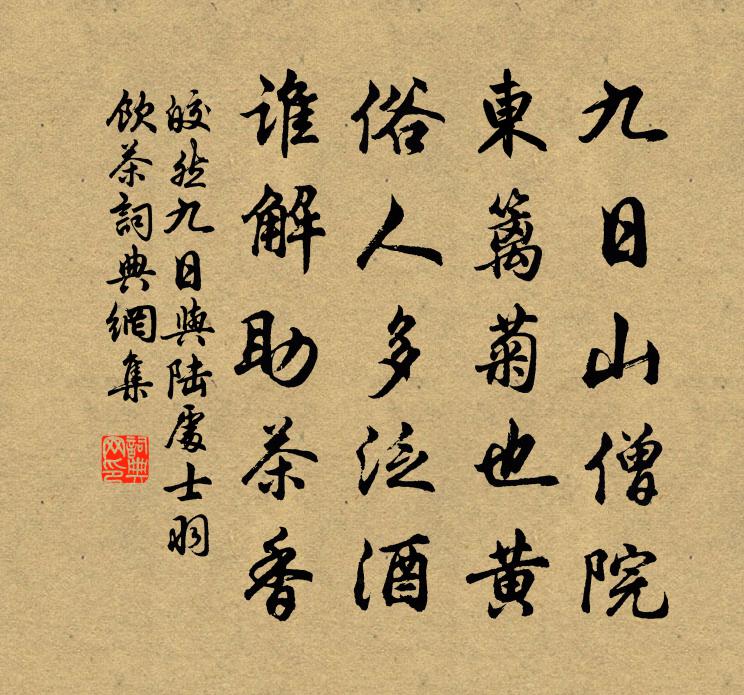 九日山僧院
東籬菊也黄
俗人多泛酒
誰解助茶香
皎然九日與陸處士羽
飲茶詞典網集
詞典网印